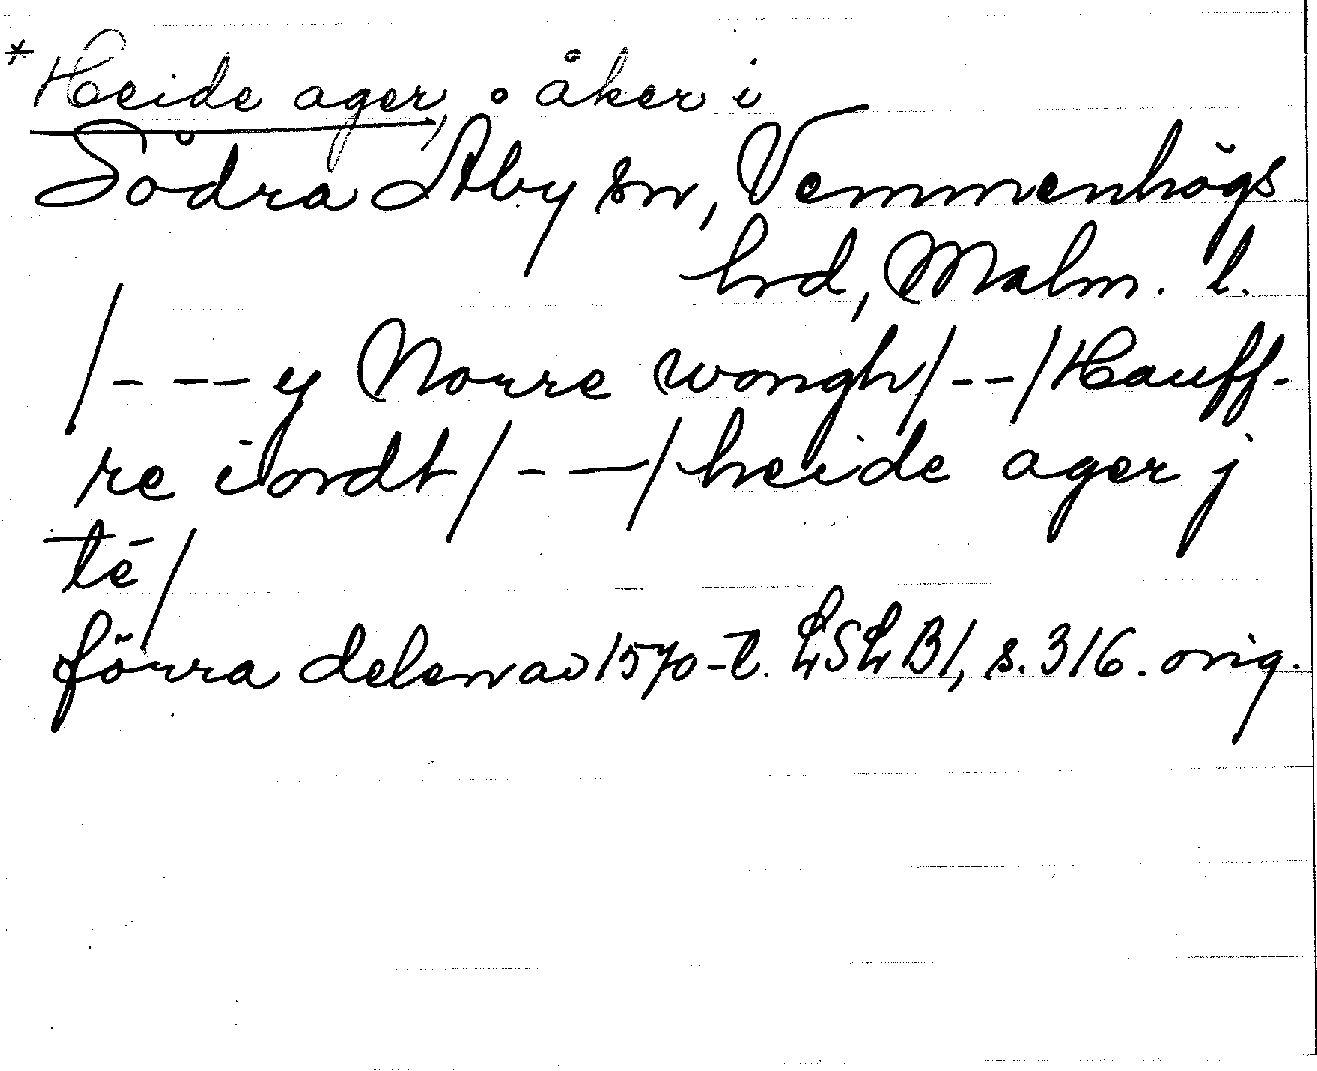 *Heide ager, åker i
Södra Åby sn, Vemmenhögs
hrd, Malm. l.
/- - - y Norre wongh/- -/Hauff-
re iordt/- -/heide ager j
té/
förra delen av 1570-t. LSLB1, s. 316. orig.